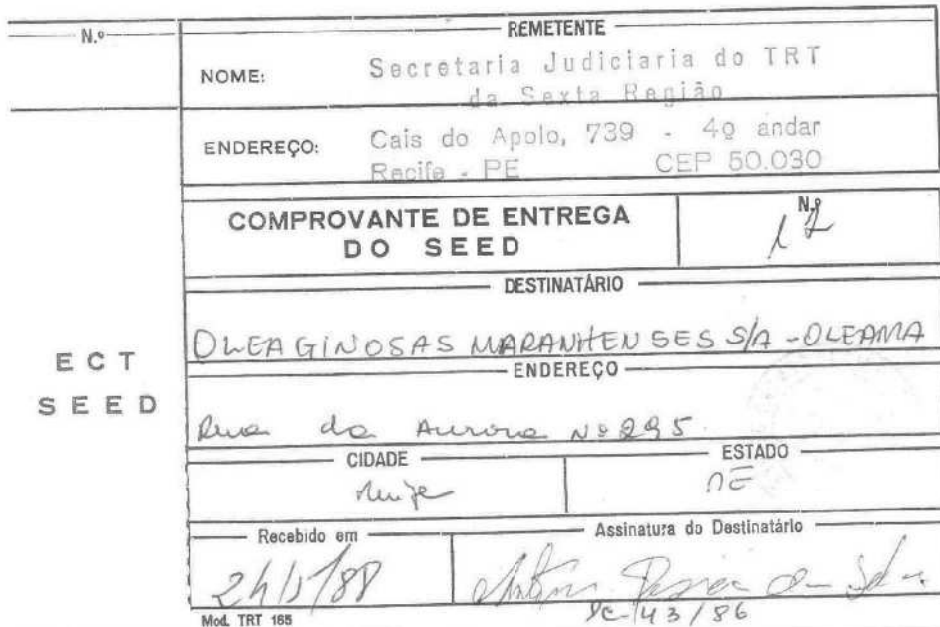 N.º
REMETENTE
NOME: Secretaria Judiciaria do TRT
da Sexta Região
ENDEREÇO: Cais do Apolo, 739 - 4º andar
Recife - PE CEP 50.030
COMPROVANTE DE ENTREGA
DO SEED
N.º
12
DESTINATÁRIO
OLEAGINOSAS MARANHENSES S/A - OLEAMA
ENDEREÇO
Rua da Aurora Nº 295
ECT
SEED
CIDADE
ESTADO
Recebido em
Assinatura do Destinatário
43/86
Mod. TRT 165